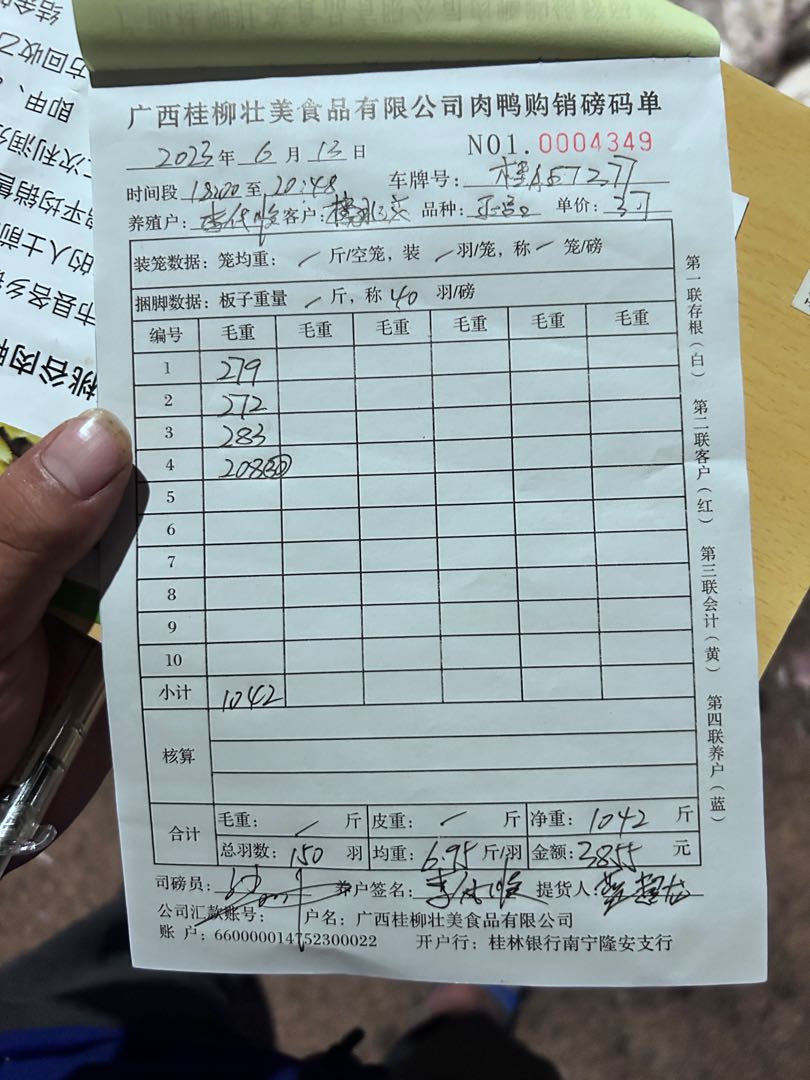 广西桂柳壮美食品有限公司肉鸭购销磅码单
2023年 6 月 13 日 NO1.0004349
时间段 18:00 至 20:48 车牌号:
养殖户: 客户: 品种: 单价: 3.7
装笼数据: 笼均重: / 斤/空笼, 装 / 羽/笼, 称 / 笼/磅
捆脚数据: 板子重量 / 斤, 称 40 羽/磅
编号 毛重 毛重 毛重 毛重 毛重 毛重
1 279
2 272
3 283
4 208 (30)
5
6
7
8
9
10
小计 1042
核算
合计 毛重: / 斤 皮重: / 斤 净重: 1042 斤
总羽数: 150 羽 均重: 6.95 斤/羽 金额: 3855 元
司磅员: 养户签名: 提货人:
公司汇款账号: 户名: 广西桂柳壮美食品有限公司
账 户: 660000014752300022 开户行: 桂林银行南宁隆安支行
第一联存根(白) 第二联客户(红) 第三联会计(黄) 第四联养户(蓝)